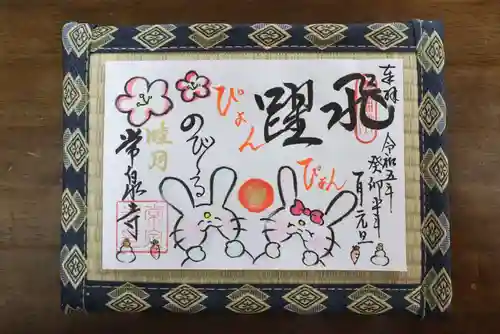 奉拝
令和五年
癸卯年
一月元旦
飛躍
ぴょん
ぴょん
のびーる
睦月
常泉寺